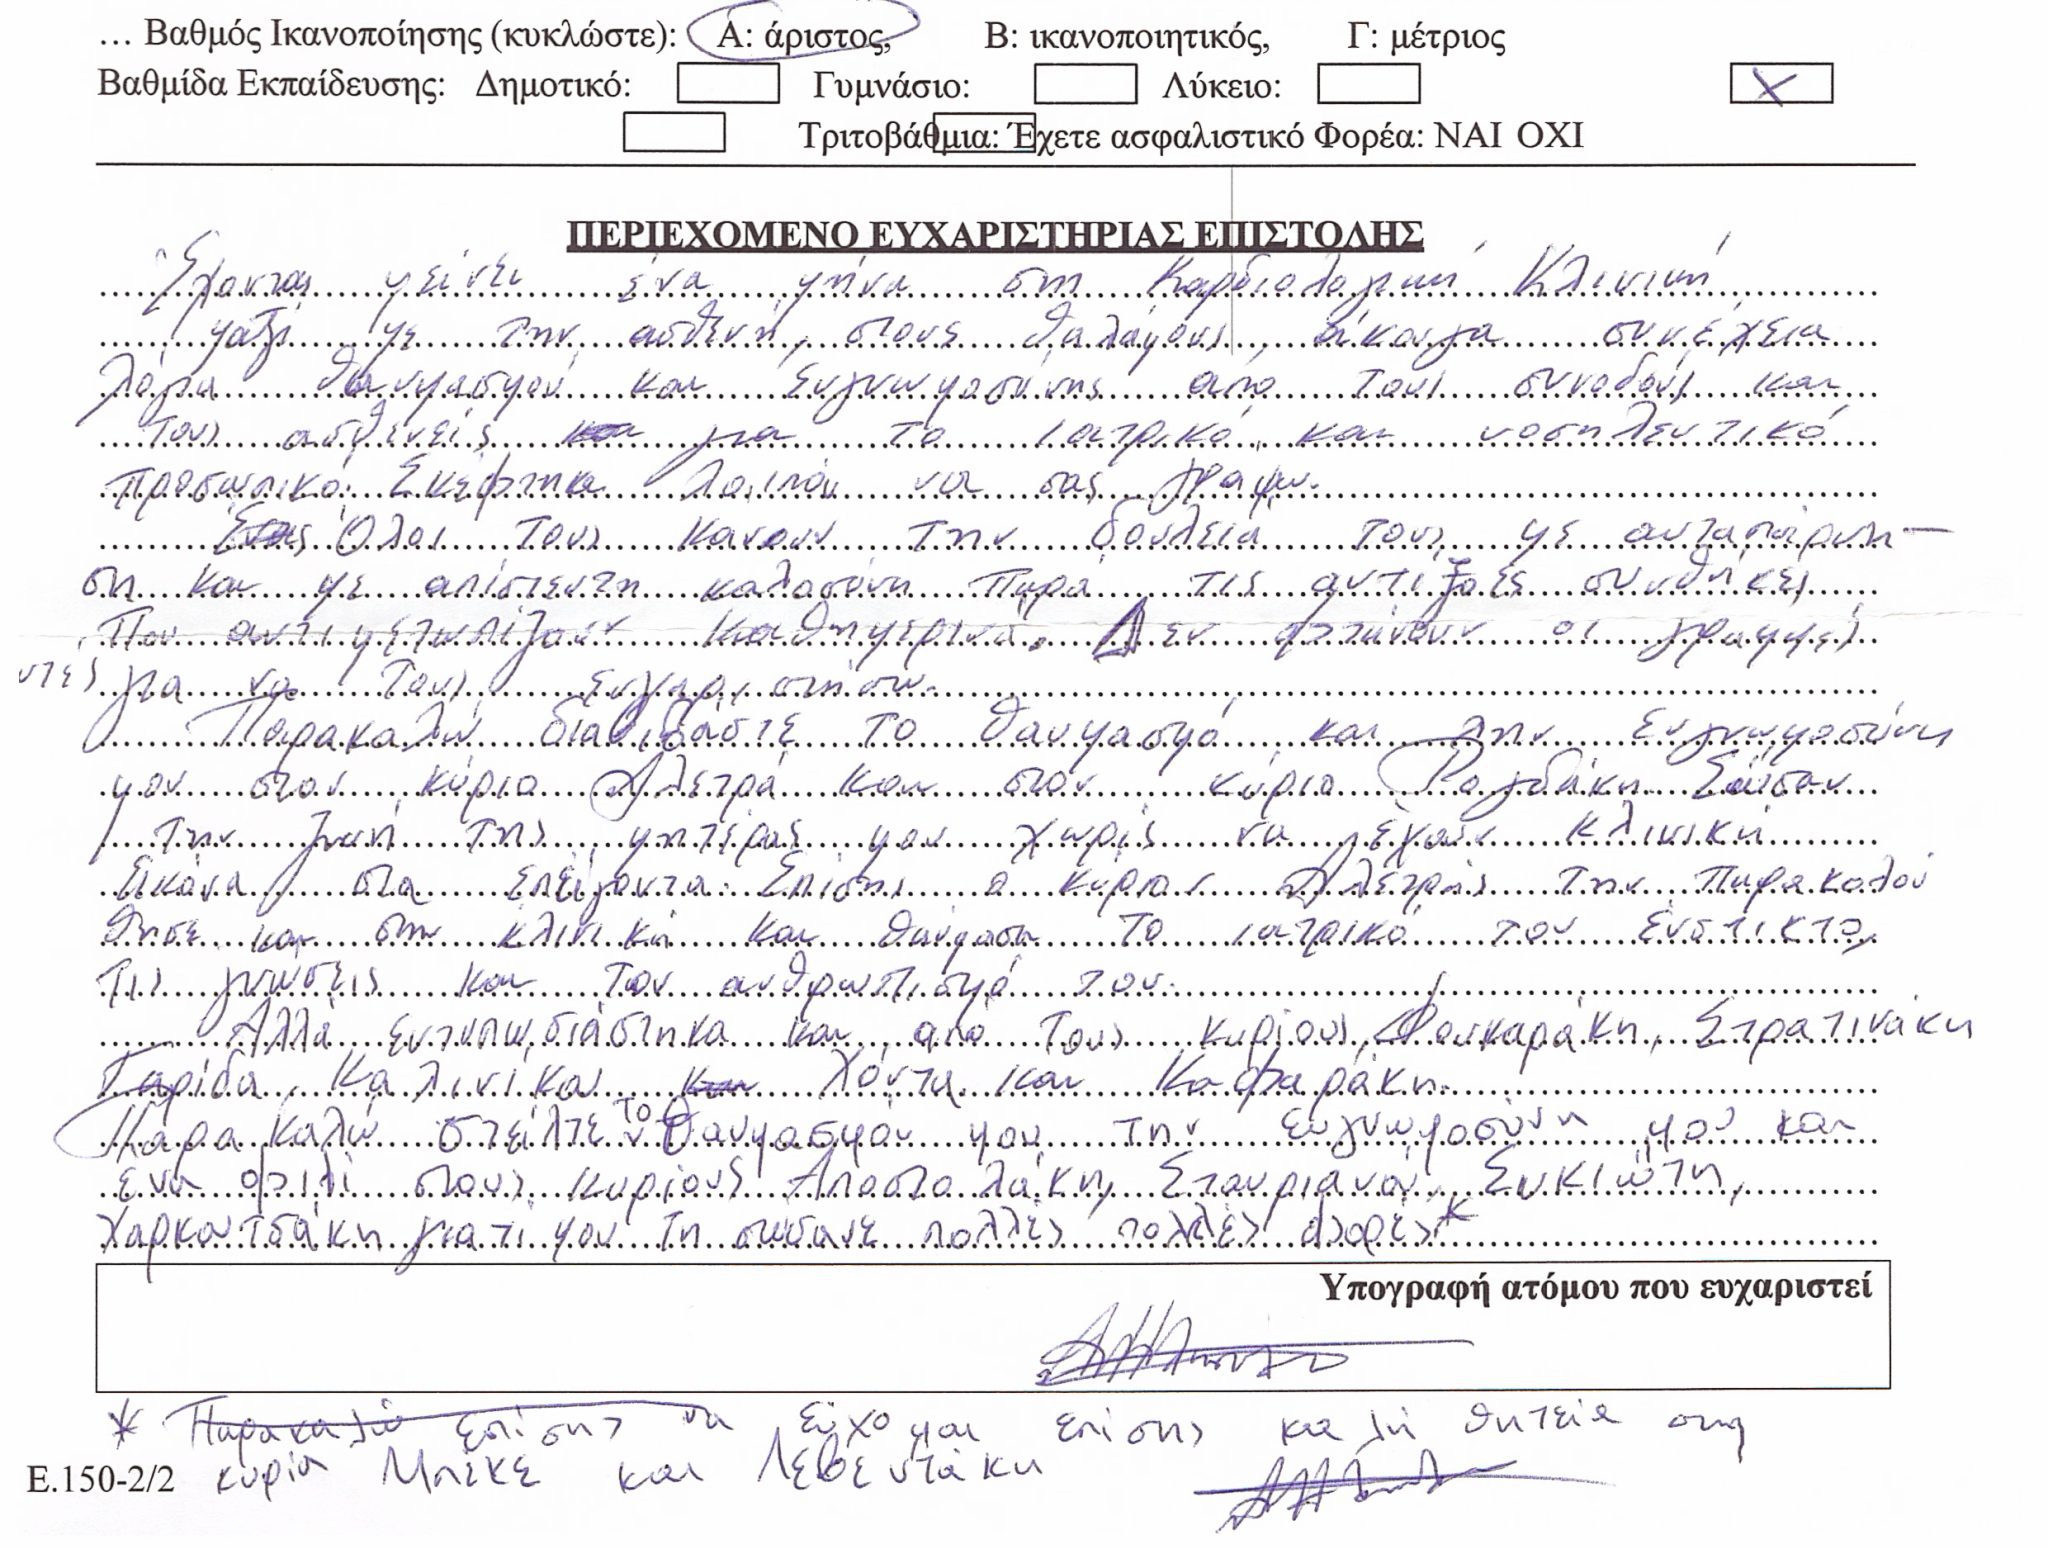 ... Βαθμός Ικανοποίησης (κυκλώστε): Α: άριστος, Β: ικανοποιητικός, Γ: μέτριος
Βαθμίδα Εκπαίδευσης: Δημοτικό: Γυμνάσιο: Λύκειο: X
Τριτοβάθμια: Έχετε ασφαλιστικό Φορέα: ΝΑΙ ΟΧΙ
ΠΕΡΙΕΧΟΜΕΝΟ ΕΥΧΑΡΙΣΤΗΡΙΑΣ ΕΠΙΣΤΟΛΗΣ
Έχοντας μείνει ένα μήνα στη Καρδιολογική Κλινική
μαζί με την ασθενή, στους θαλάμους άκουγα συνέχεια
λόγια θαυμασμού και ευγνωμοσύνης από τους συνοδούς και
τους ασθενείς για το ιατρικό και νοσηλευτικό
προσωπικό. Σκέφτηκα λοιπόν να σας γράψω.
Όλοι τους κάνουν την δουλειά τους με αυταπάρνη-
ση και με απίστευτη καλοσύνη παρά τις αντίξοες συνθήκες
που αντιμετωπίζουν καθημερινά. Δεν φτάνουν οι γραμμές
υτές για να τους ευχαριστήσω.
Παρακαλώ διαβιβάστε το θαυμασμό και την ευγνωμοσύνη
μου στον κύριο Αλετρά και στον κύριο Ραγδάκη Σώσαν
την ζωή της μητέρας μου χωρίς να έχουν κλινική
εικόνα στα επείγοντα. Επίσης ο κύριος Αλετράς την παρακολού
θησε και στην κλινική και θαύμασα το ιατρικό του ένστικτο,
τις γνώσεις και τον ανθρωπισμό του.
Αλλά εντυπωσιάστηκα και από τους κυρίους Φουκαράκη, Στρατινάκη
Γαρίδα, Καλινίκος Χόντα και Καφαράκη.
Παρακαλώ στείλτε το θαυμασμόν μου την ευγνωμοσύνη μου και
ένα φιλί στους κυρίους Αποστολάκη, Σταυριανού, Συκιώτη,
Χαρκουτσάκη γιατί μου τη σώσανε πολλές πολλές φορές*
Υπογραφή ατόμου που ευχαριστεί
* Παρακαλώ επίσης να εύχομαι επίσης καλή θητεία στη
κυρία Μπεκε και Λεβεντάκη
Ε.150-2/2